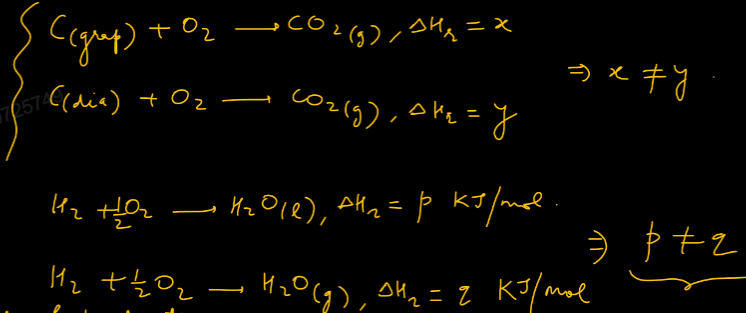 C(grap) + O2 → CO2(g), ΔHr = x
⇒ x ≠ y.
C(dia) + O2 → CO2(g), ΔHr = y
H2 + 1/2 O2 → H2O(l), ΔHr = p KJ/mol.
⇒ p ≠ q
H2 + 1/2 O2 → H2O(g), ΔHr = q KJ/mol